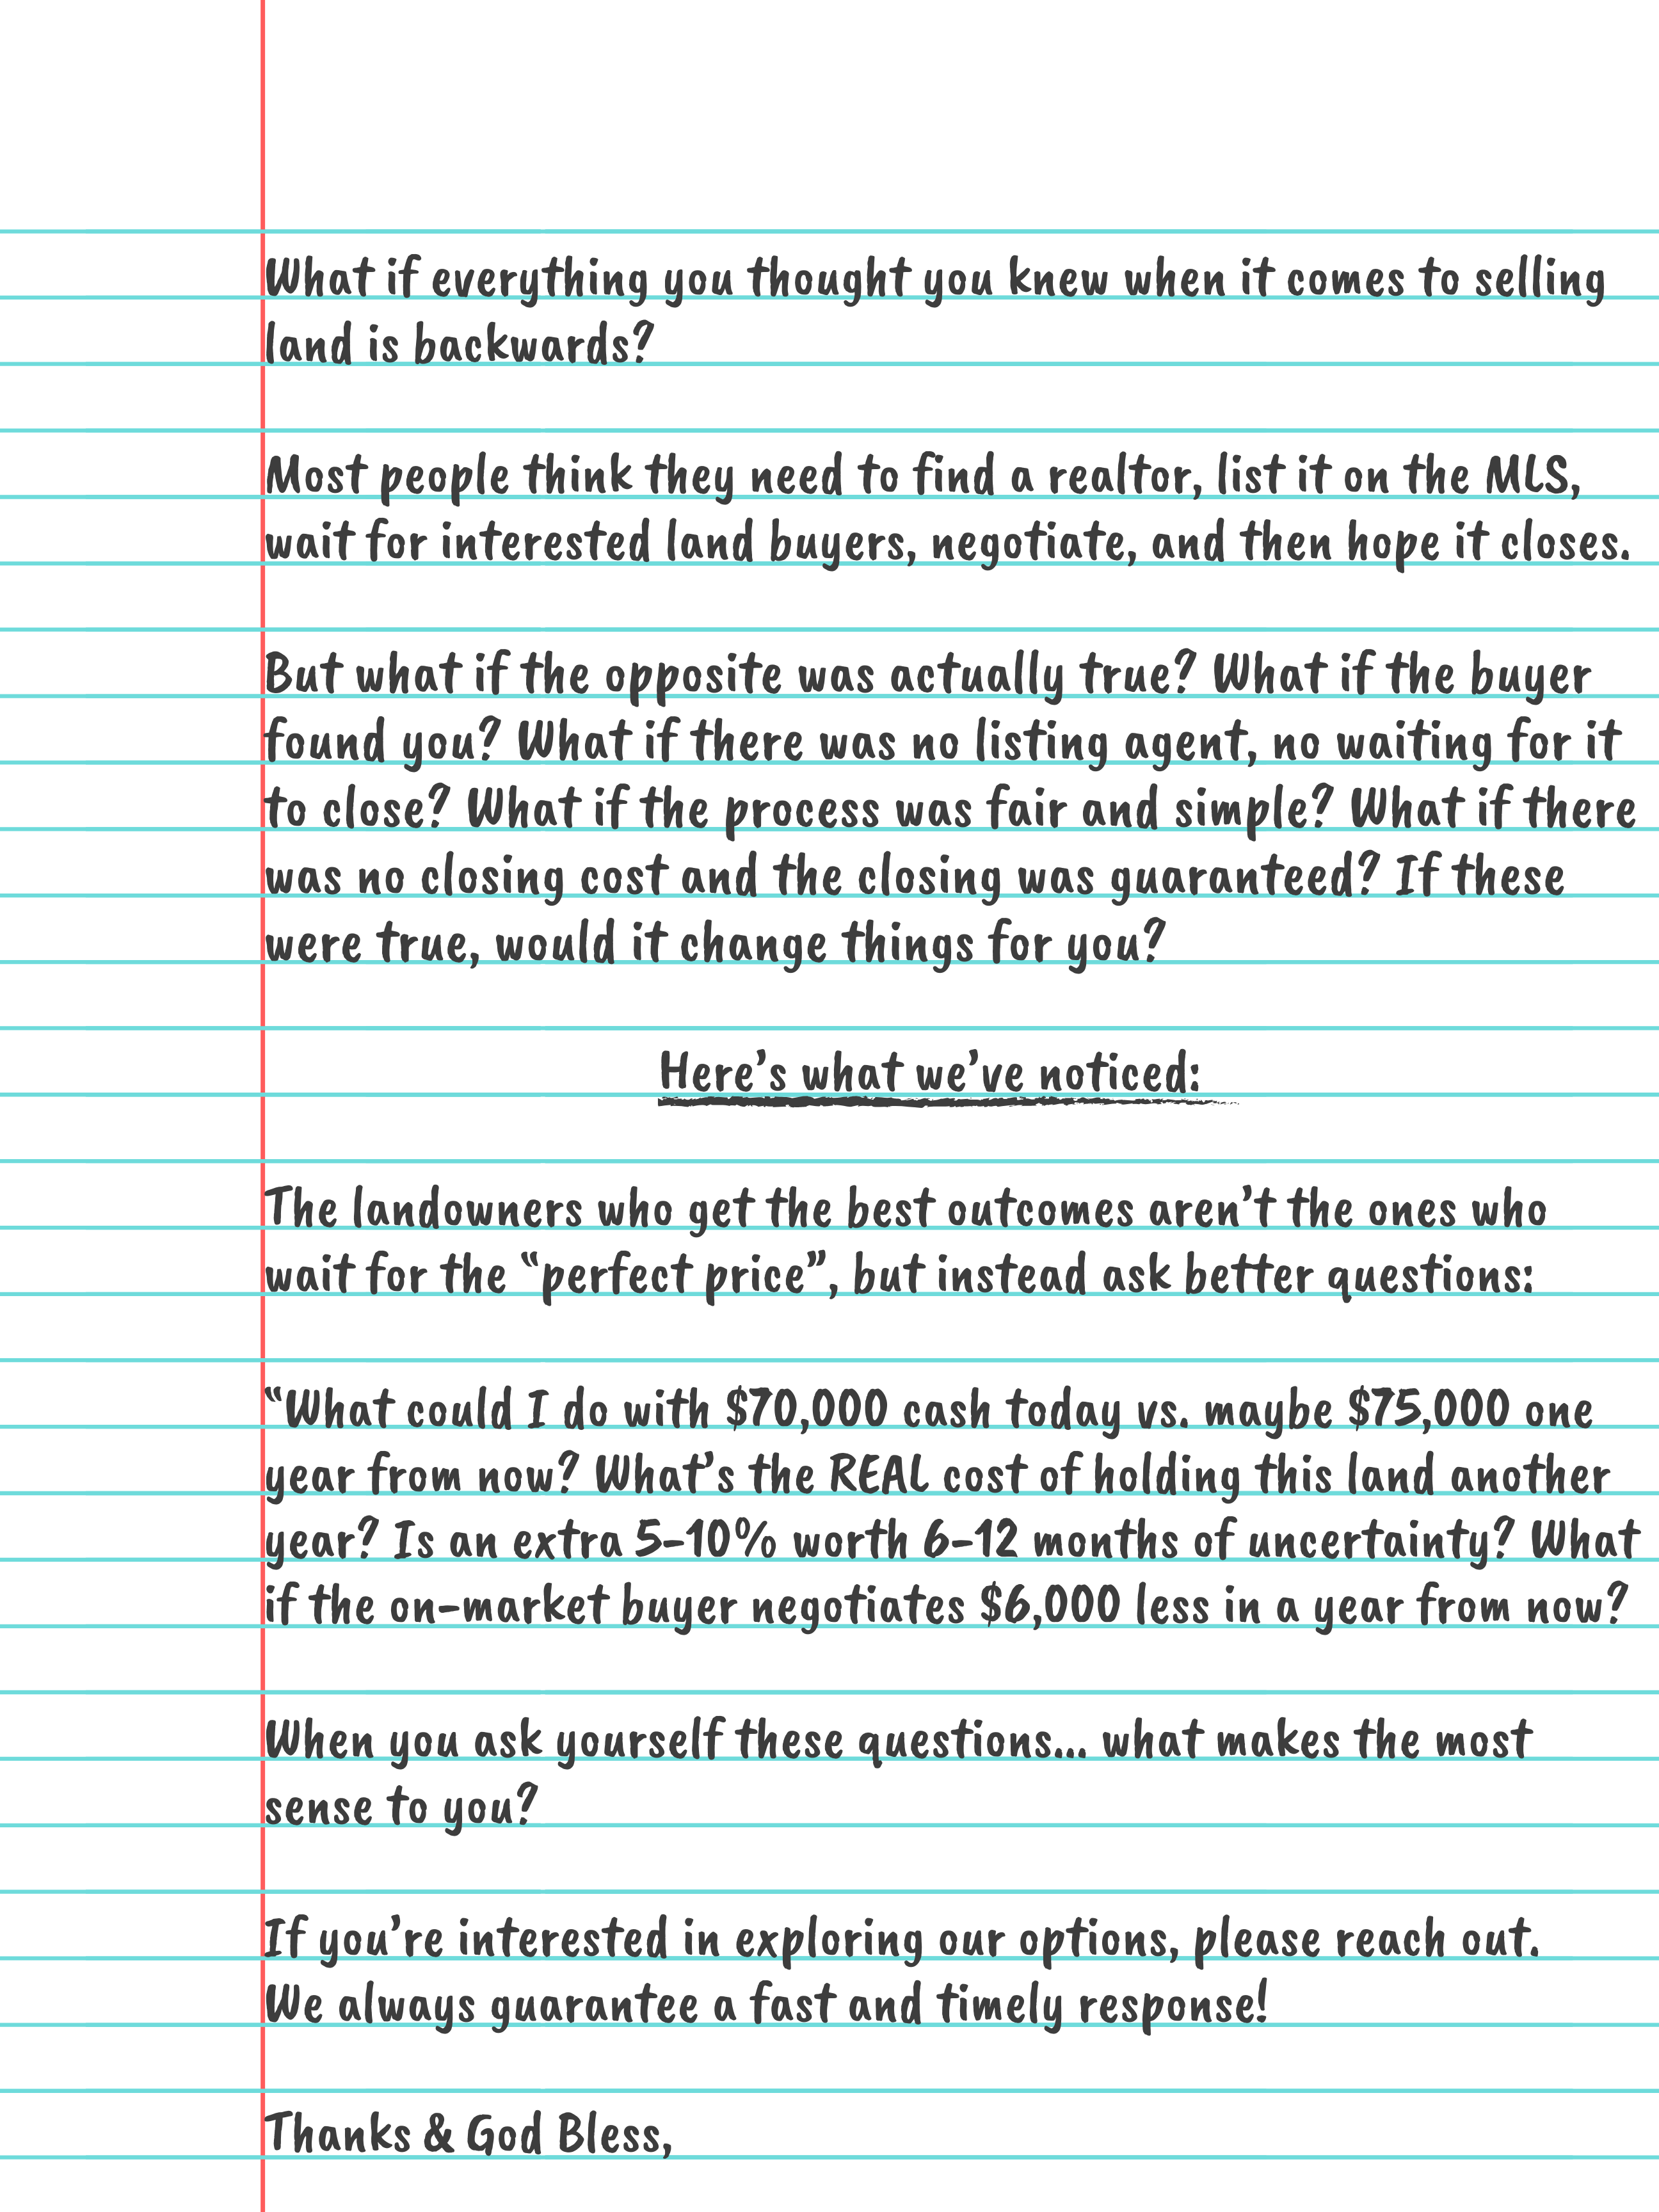 What if everything you thought you knew when it comes to selling
land is backwards?
Most people think they need to find a realtor, list it on the MLS,
wait for interested land buyers, negotiate, and then hope it closes.
But what if the opposite was actually true? What if the buyer
found you? What if there was no listing agent, no waiting for it
to close? What if the process was fair and simple? What if there
was no closing cost and the closing was guaranteed? If these
were true, would it change things for you?
Here’s what we’ve noticed:
The landowners who get the best outcomes aren’t the ones who
wait for the “perfect price”, but instead ask better questions:
“What could I do with $70,000 cash today vs. maybe $75,000 one
year from now? What’s the REAL cost of holding this land another
year? Is an extra 5-10% worth 6-12 months of uncertainty? What
if the on-market buyer negotiates $6,000 less in a year from now?
When you ask yourself these questions... what makes the most
sense to you?
If you’re interested in exploring our options, please reach out.
We always guarantee a fast and timely response!
Thanks & God Bless,